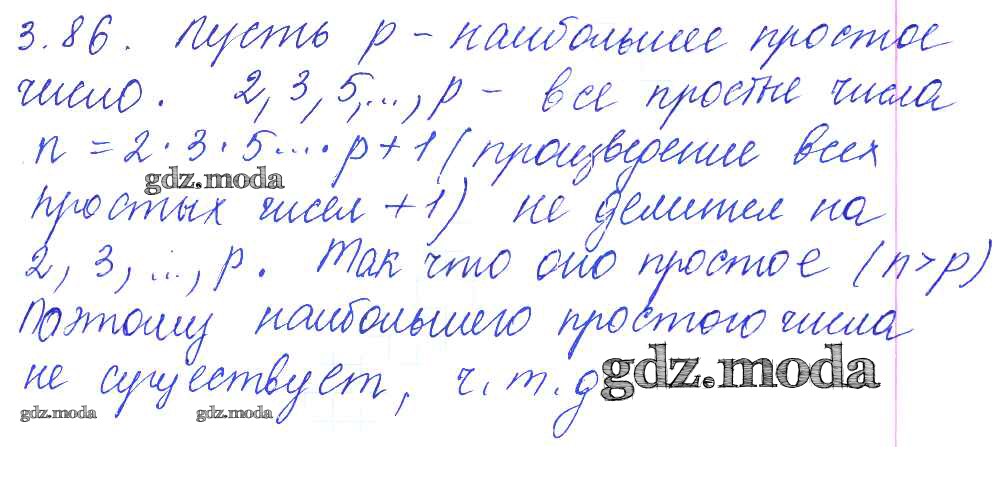 3.86. Пусть p – наибольшее простое
число. 2, 3, 5,..., p – все простые числа
n = 2 · 3 · 5 ... · p + 1 (произведение всех
gdz.moda
простых чисел + 1) не делител на
2, 3, ..., p. Так что оно простое (n > p)
Поэтому наибольшего простого числа
не существует, ч.т.д
gdz.moda
gdz.moda gdz.moda